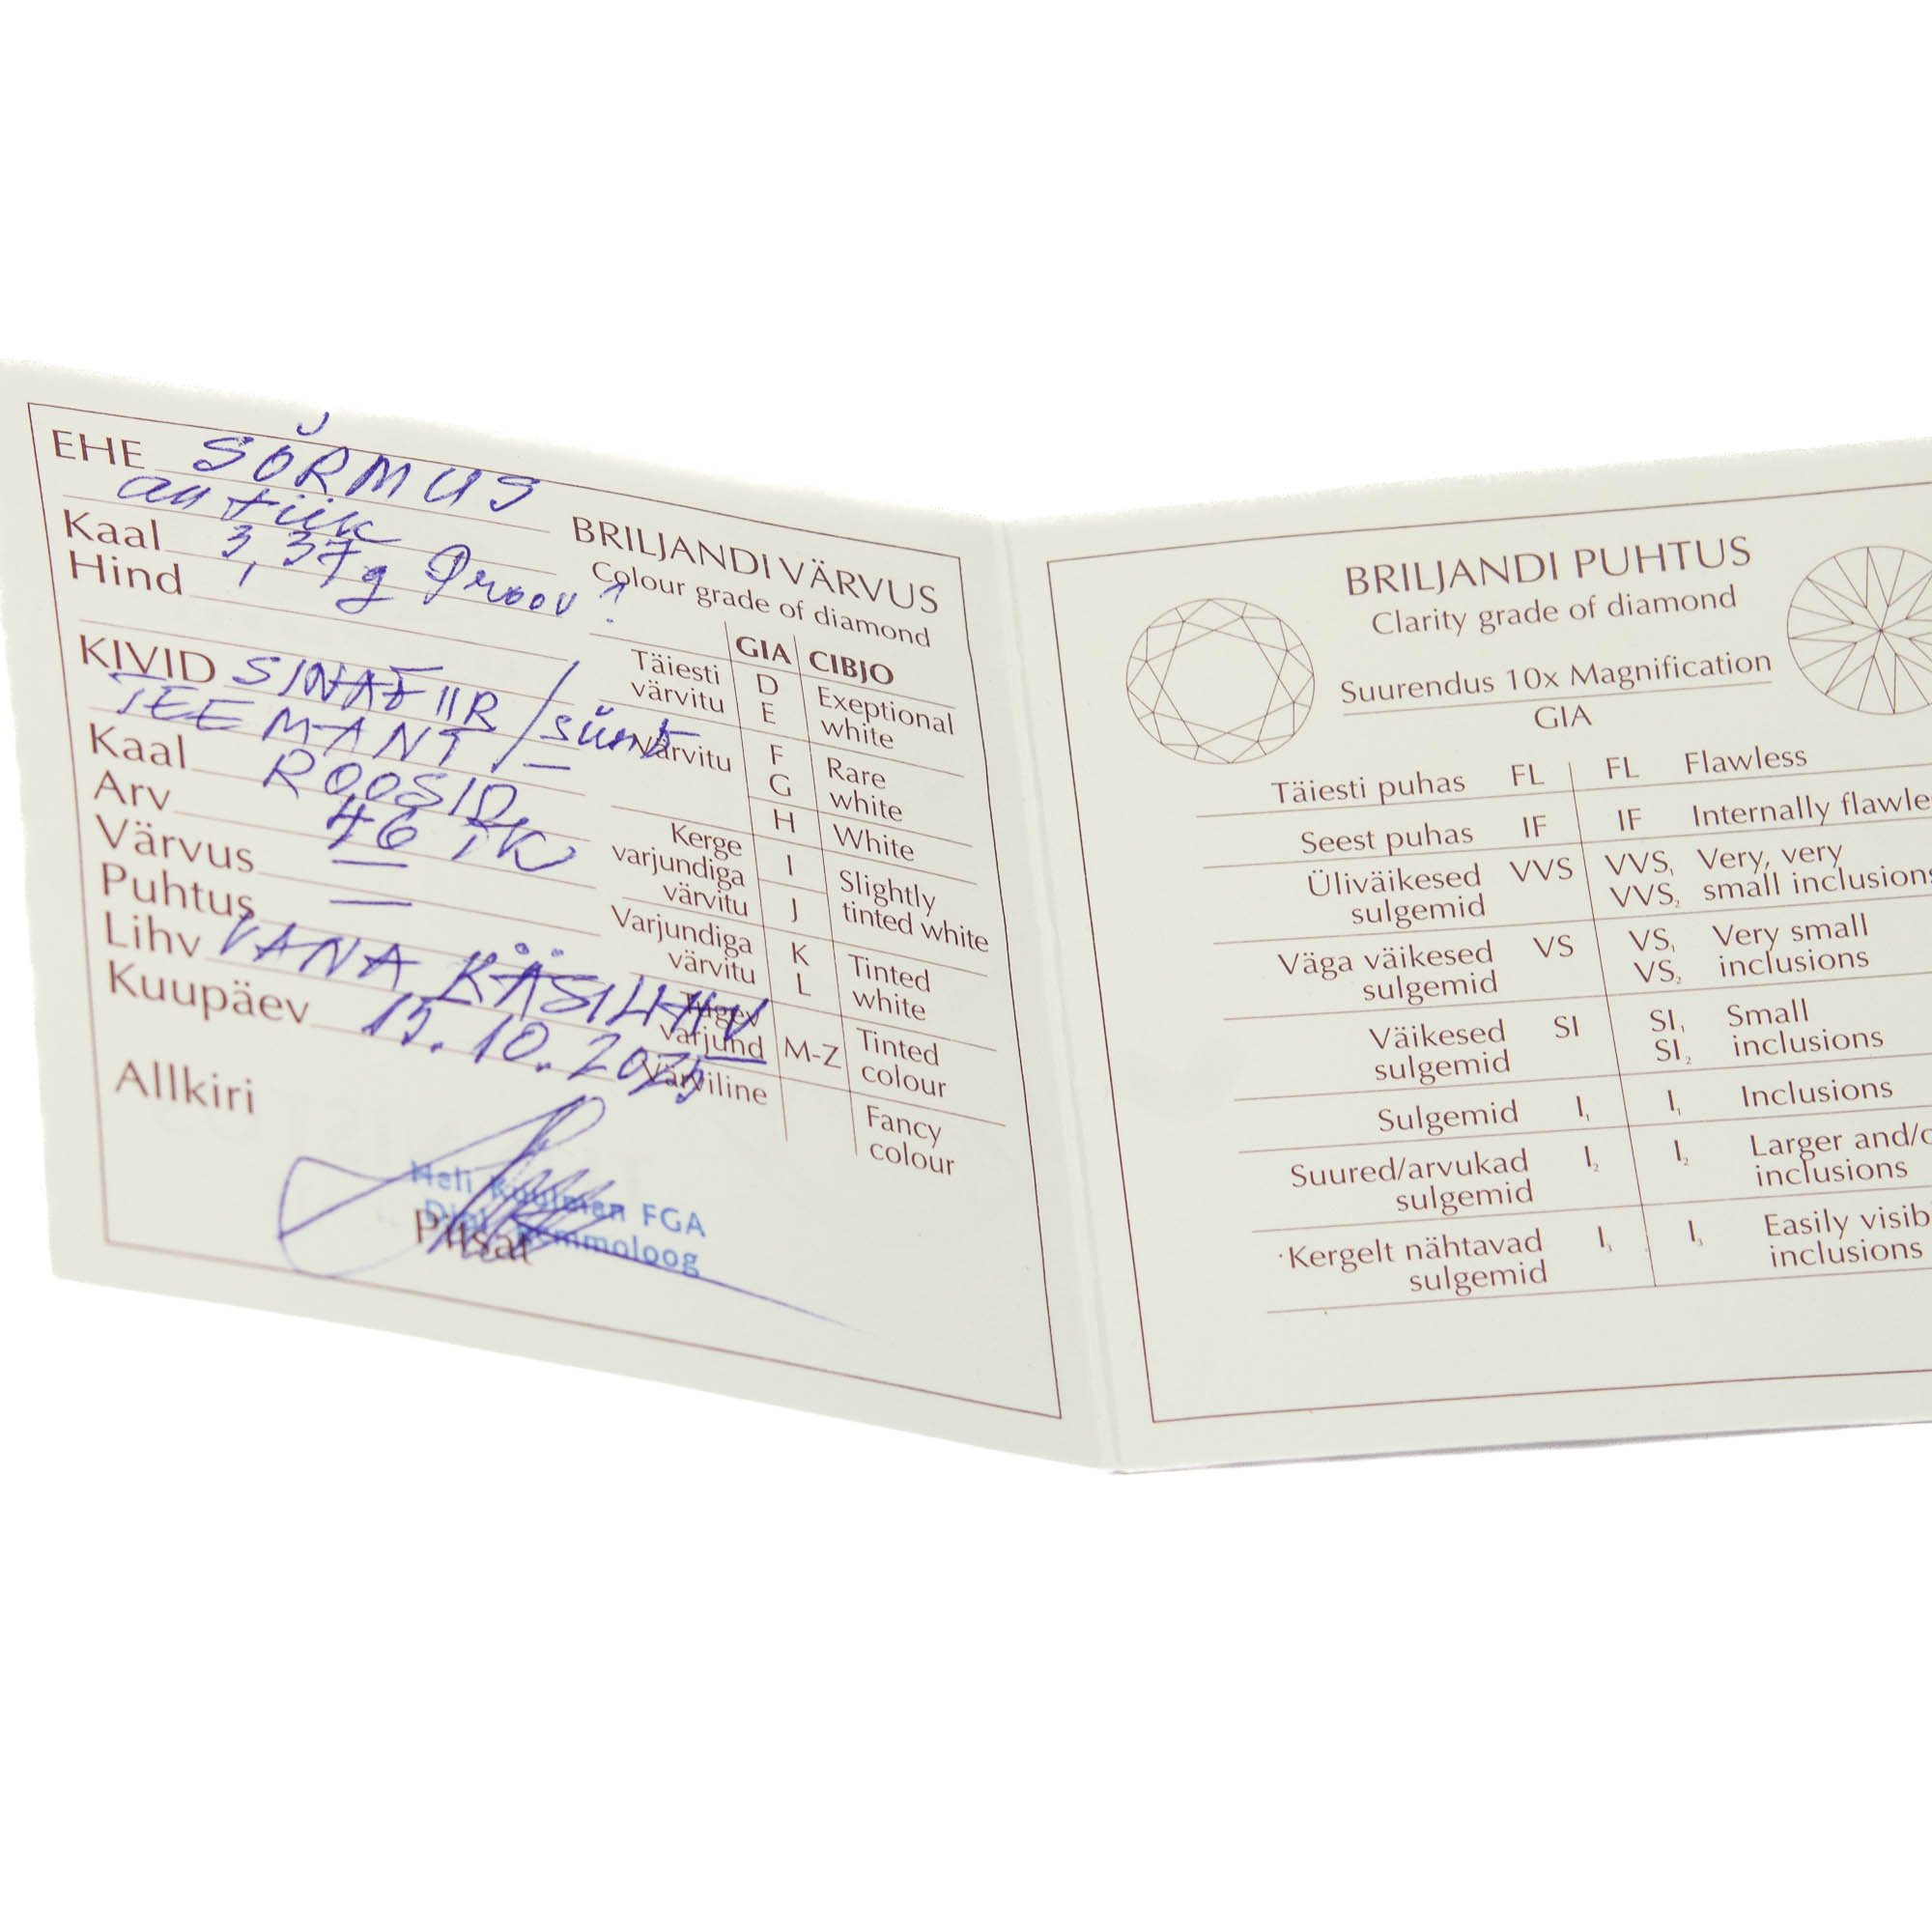 EHE SÕRMUS
antiik
Kaal 3,37g Proov ?
Hind
KIVID SINAFIIR / sünt
TEEMANT
Kaal ROOSID
Arv 46 TK
Värvus —
Puhtus —
Lihv VANA KÄSILIHV
Kuupäev 15.10.
Allkiri
Heli FGA
Pitsat
BRILJANDI VÄRVUS
Colour grade of diamond
GIA CIBJO
Täiesti värvitu D E Exeptional white
Värvitu F G Rare white
H White
Kerge varjundiga värvitu I J Slightly tinted white
Varjundiga värvitu K L Tinted white
Tugev varjund M-Z Tinted colour
Värviline Fancy colour
BRILJANDI PUHTUS
Clarity grade of diamond
Suurendus 10x Magnification
GIA
Täiesti puhas FL FL Flawless
Seest puhas IF IF Internally flawle
Üliväikesed VVS VVS₁ Very, very
sulgemid VVS₂ small inclusions
Väga väikesed VS VS₁ Very small
sulgemid VS₂ inclusions
Väikesed SI SI₁ Small
sulgemid SI₂ inclusions
Sulgemid I₁ I₁ Inclusions
Suured/arvukad I₂ I₂ Larger and/o
sulgemid inclusions
Kergelt nähtavad I₃ I₃ Easily visib
sulgemid inclusions